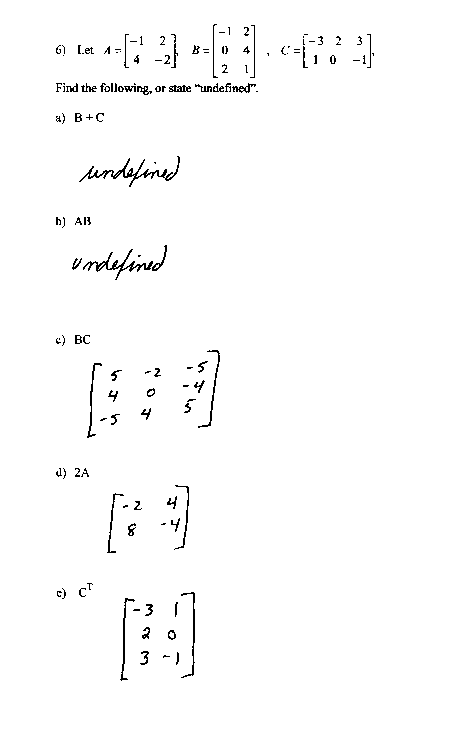 6) Let A = [-1 2; 4 -2], B = [-1 2; 0 4; 2 1], C = [-3 2 3; 1 0 -1],
Find the following, or state "undefined".
a) B + C
undefined
b) AB
undefined
c) BC
5 -2 -5
4 0 -4
-5 4 5
d) 2A
-2 4
8 -4
e) Cᵀ
-3 1
2 0
3 -1